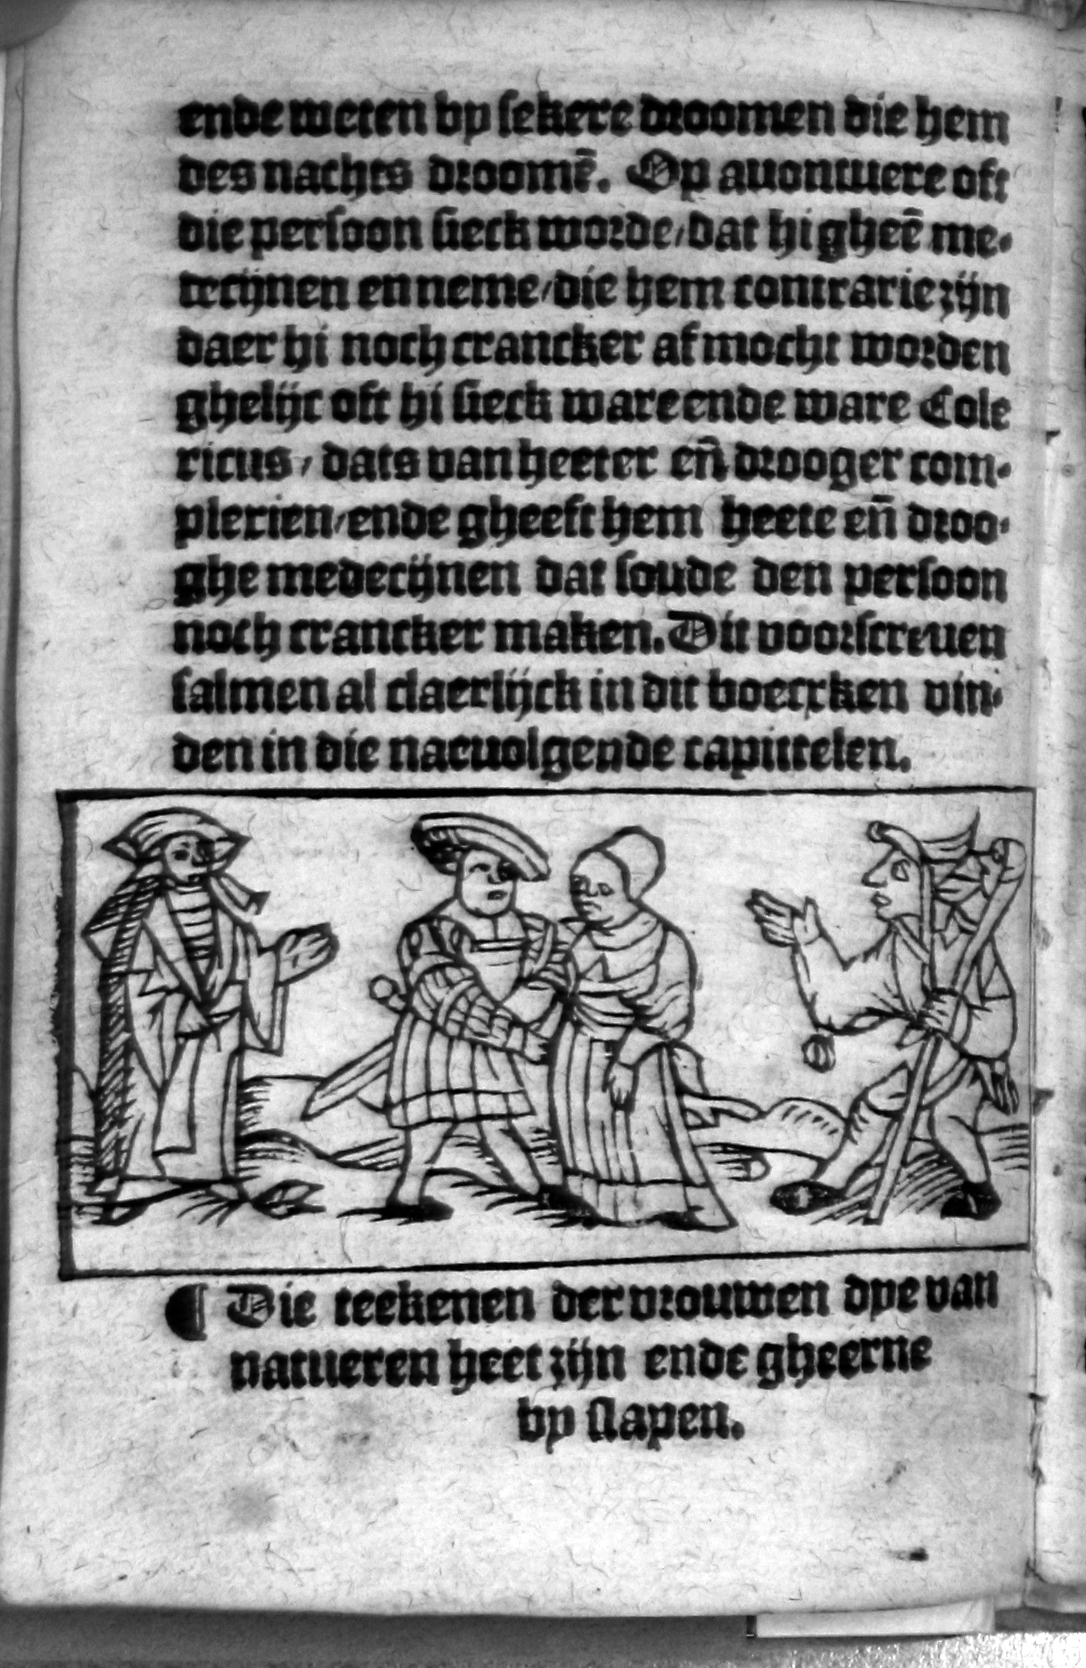 ende weten bp sekere droomen die hem
des nachts droomē. Op auontuere oft
die persoon sieck worde/dat hi gheē me-
tecijnen en neme/die hem contrarie zijn
daer hi noch crancker af mocht worden
ghelijc oft hi sieck ware ende ware Cole
ricus/dats van heeter en̄ drooger com-
plexien/ende gheeft hem heete en̄ droo-
ghe medecijnen dat soude den persoon
noch crancker maken. Dit voorscreuen
salmen al claerlijck in dit boecxken vin-
den in die nacuolgende capittelen.
¶ Die teekenen der vrouwen dye van
natueren heet zijn ende gheerne
bp slapen.